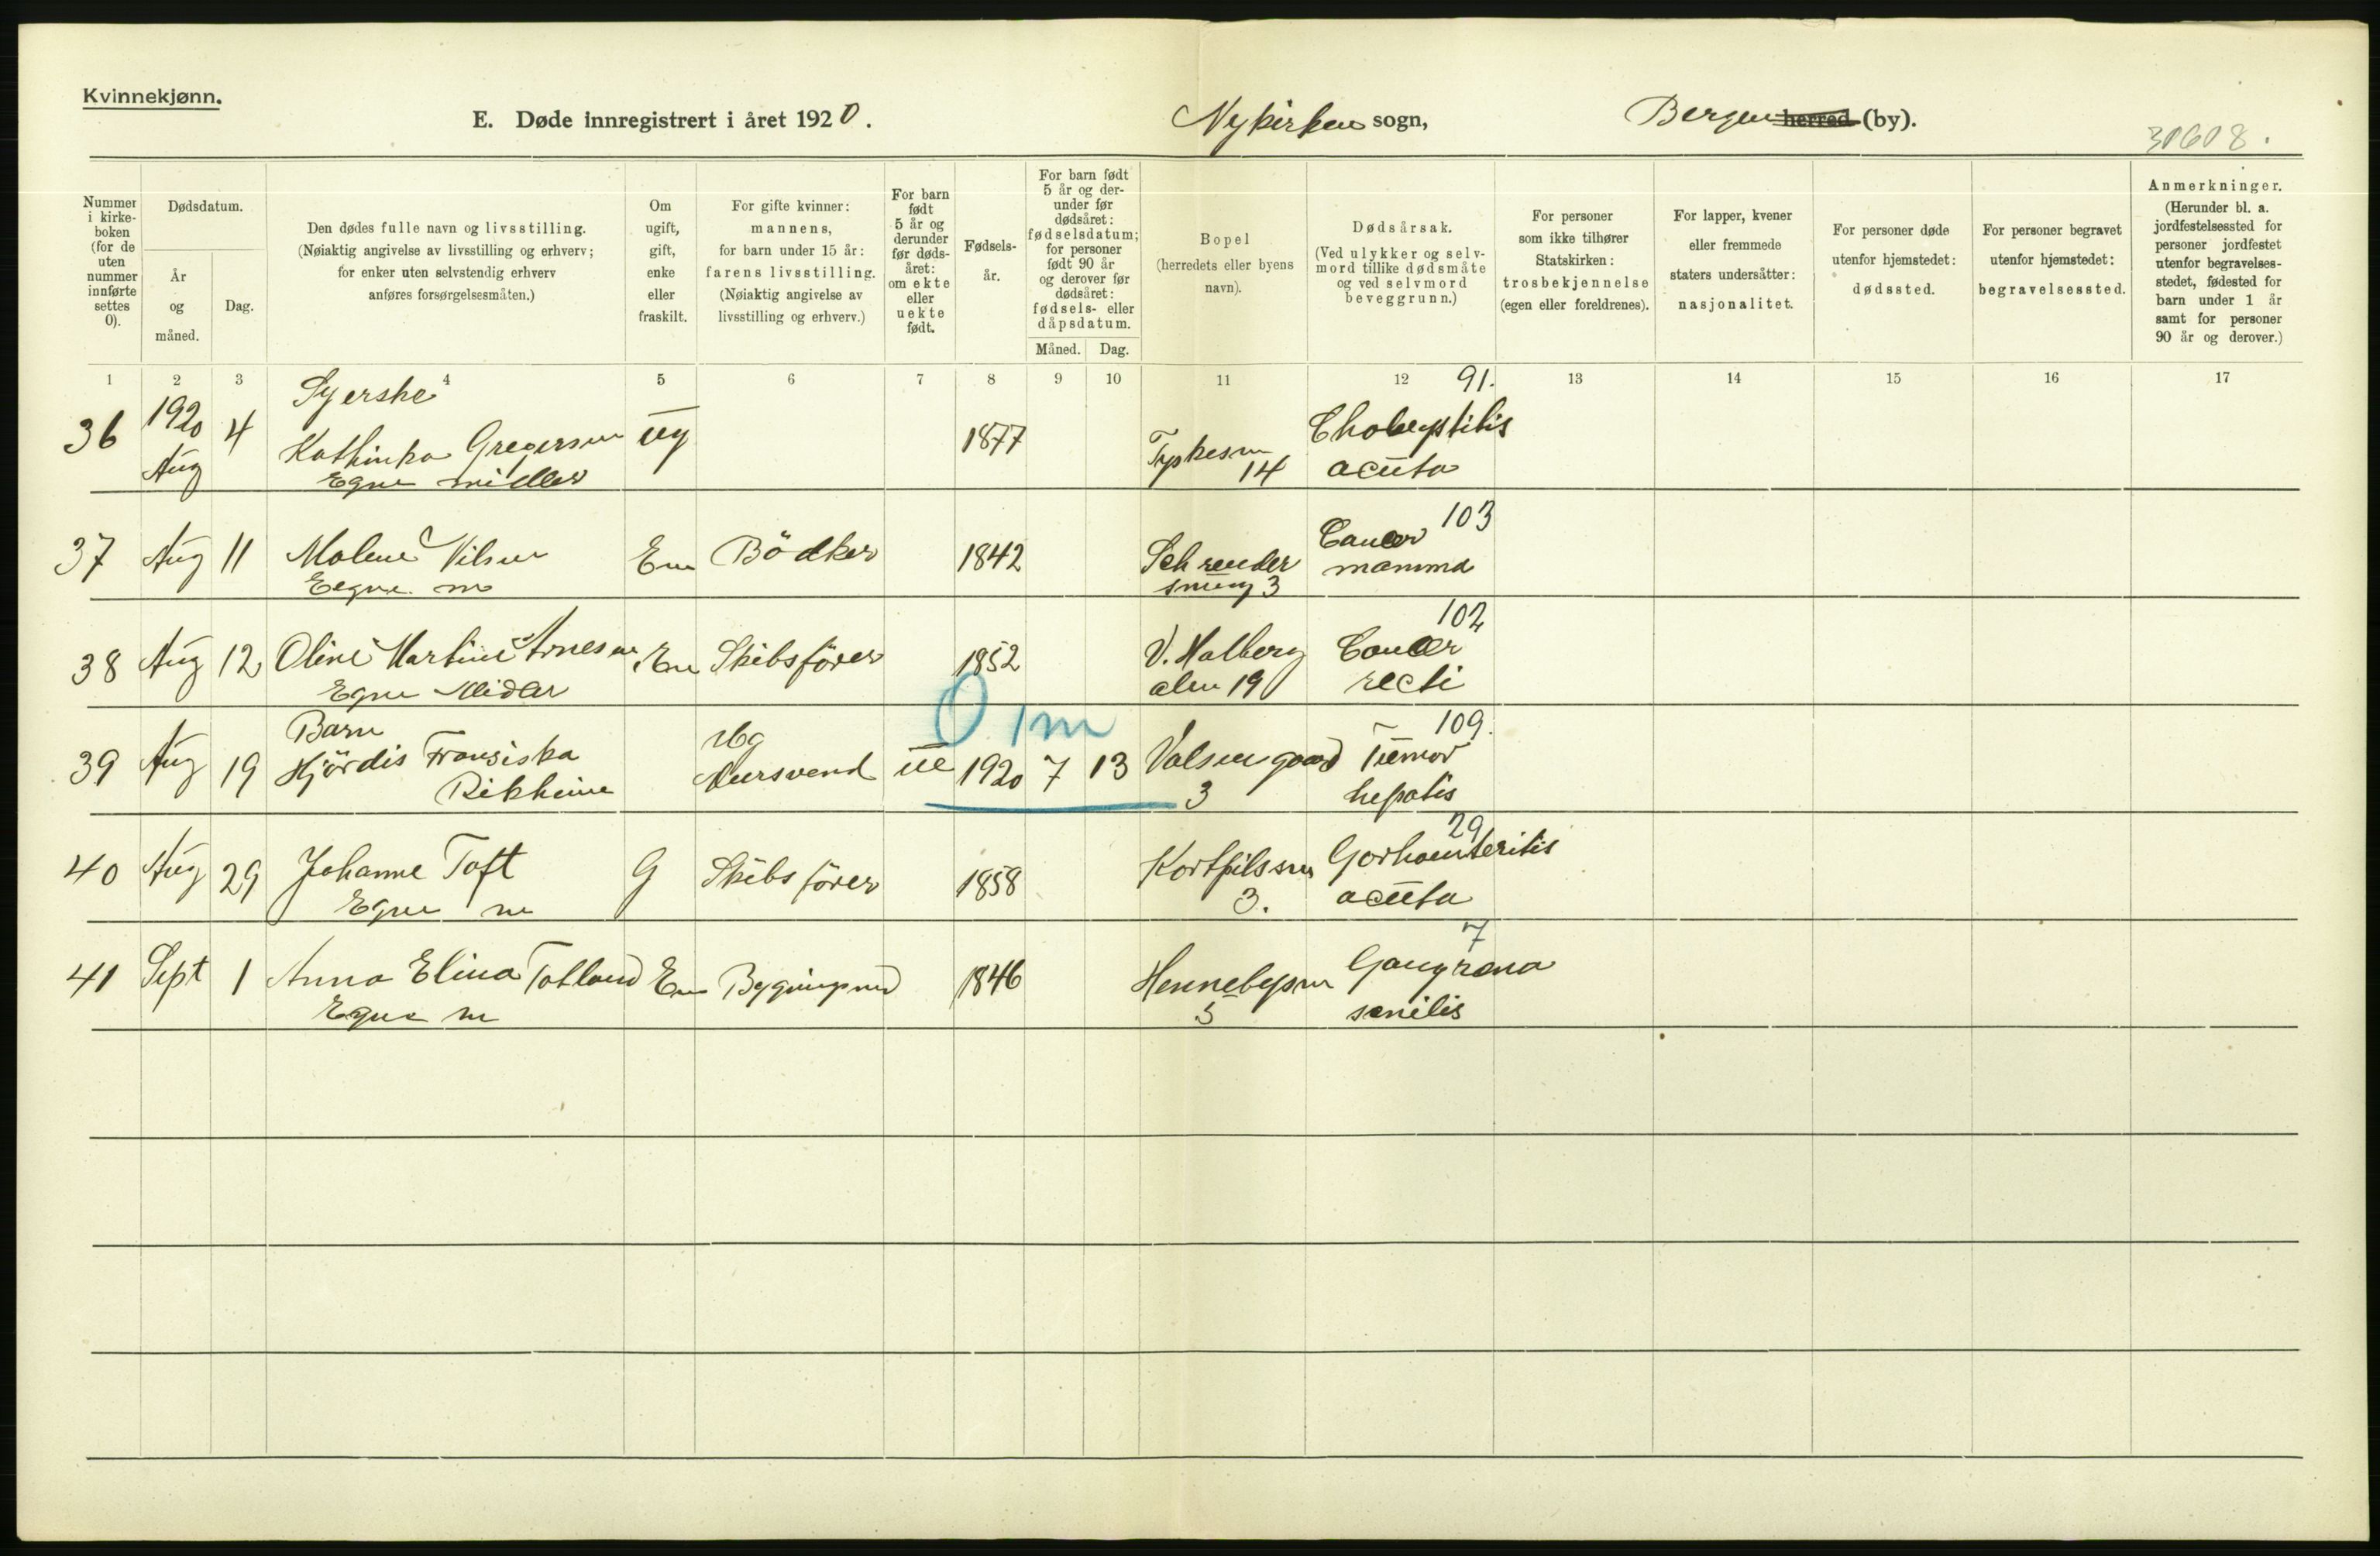 Kvinnekjønn.
E. Døde innregistrert i året 1920.
Nykirken sogn,
Bergen herred (by).
30608.
Nummer i kirke-boken (for de uten nummer innførte settes 0).
Dødsdatum.
År og måned.
Dag.
Den dødes fulle navn og livsstilling.
(Nøiaktig angivelse av livsstilling og erhverv;
for enker uten selvstendig erhverv
anføres forsørgelsesmåten.)
Om ugift, gift, enke eller fraskilt.
For gifte kvinner:
mannens,
for barn under 15 år:
farens livsstilling.
(Nøiaktig angivelse av
livsstilling og erhverv.)
For barn født 5 år og derunder før døds-året: om ekte eller uekte født.
Fødsels-år.
For barn født 5 år og der-under før dødsåret: fødselsdatum; for personer født 90 år og derover før dødsåret: fødsels- eller dåpsdatum.
Måned. Dag.
Bopel
(herredets eller byens
navn).
Dødsårsak.
(Ved ulykker og selv-
mord tillike dødsmåte
og ved selvmord
beveggrunn.)
For personer
som ikke tilhører
Statskirken:
trosbekjennelse
(egen eller foreldrenes).
For lapper, kvener
eller fremmede
staters undersåtter:
nasjonalitet.
For personer døde
utenfor hjemstedet:
dødssted.
For personer begravet
utenfor hjemstedet:
begravelsessted.
Anmerkninger.
(Herunder bl. a.
jordfestelsessted for
personer jordfestet
utenfor begravelses-
stedet, fødested for
barn under 1 år
samt for personer
90 år og derover.)
1 2 3 4 5 6 7 8 9 10 11 12 13 14 15 16 17
Syerske 91.
36 1920 Aug 4 Kathinka Gregersen ug 1877 14
Egne midler acuta
103
37 Aug 11 Malene Nilsen Em Bödker 1842 Cancer
Egne m 3 mamma
102
38 Aug 12 Oline Martine Arnesen Em Skibsförer 1852 V. Holberg Cancer
Egne Midler alm 19 recti
0 1m
Barn 109.
39 Aug 19 Hjördis Fransiska Mursvend ue 1920 7 13 Tumor
3 hepatis
29
40 Aug 29 Johanne Toft G Skibsförer 1858
Egne m 3. acuta
7
41 Sept 1 Anna Elina Totland Em 1846 Gangrena
Egne m 5 senilis